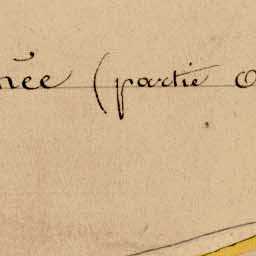 née (partie